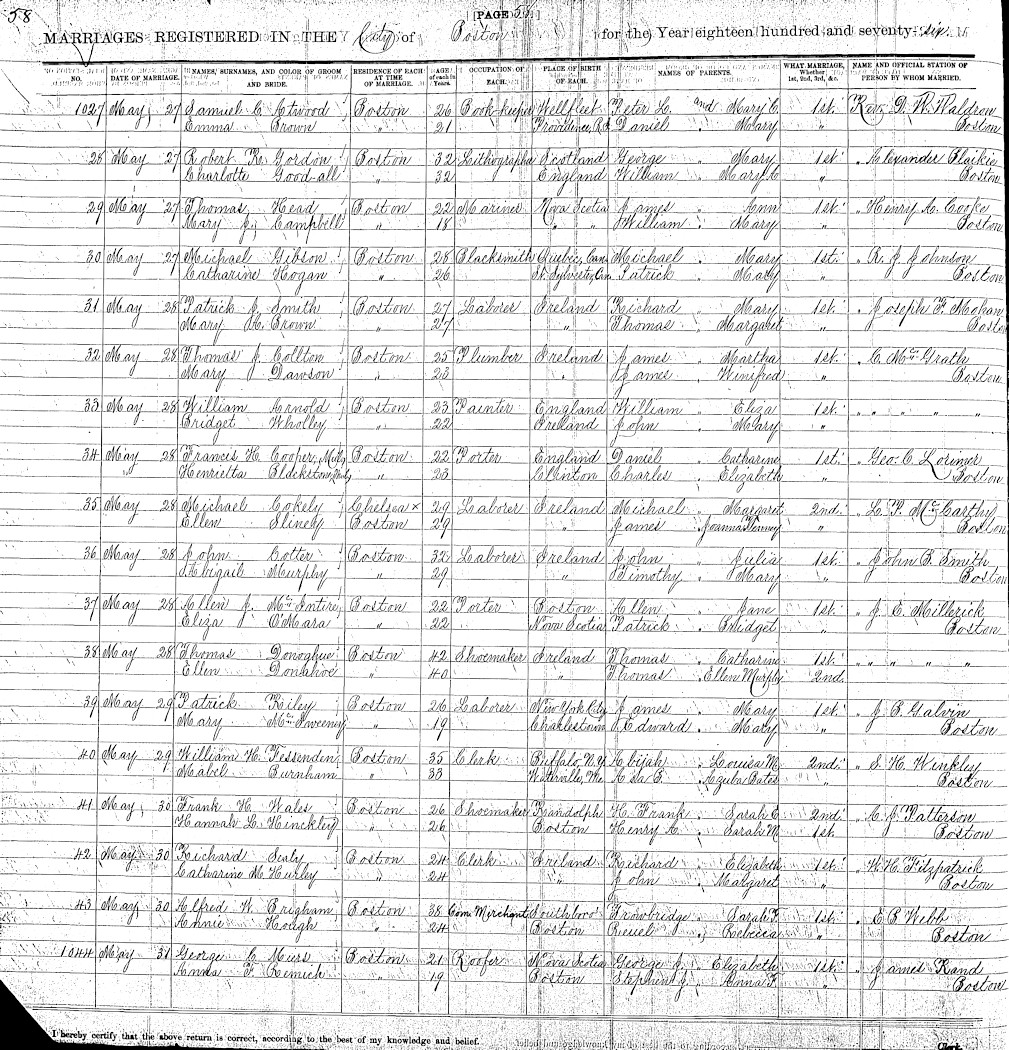 58
[PAGE 58]
MARRIAGES REGISTERED IN THE City of Boston for the Year eighteen hundred and seventy-six.
NO. DATE OF MARRIAGE. NAMES, SURNAMES, AND COLOR OF GROOM AND BRIDE. RESIDENCE OF EACH AT TIME OF MARRIAGE. AGE of each in Years. OCCUPATION OF EACH. PLACE OF BIRTH OF EACH. NAMES OF PARENTS. WHAT MARRIAGE, Whether 1st, 2nd, 3rd, &c. NAME AND OFFICIAL STATION OF PERSON BY WHOM MARRIED.
1027 May 27 Samuel C. Atwood Boston 26 Book-keeper Wellfleet Peter L. and Mary C. 1st. Rev. D. W. Waldron
Emma Brown " 21 Providence, R.I. Daniel " Mary " Boston
28 May 27 Robert R. Gordon Boston 32 Lithographer Scotland George " Mary 1st " Alexander Blaikie
Charlotte Good-all " 32 England William " Mary A " Boston
29 May 27 Thomas Head Boston 22 Mariner Nova Scotia James " Ann 1st. " Henry A. Cooke
Mary J. Campbell " 18 " " William " Mary " Boston
30 May 27 Michael Gibson Boston 28 Blacksmith Quebec, Can. Michael " Mary 1st. " R. J. Johnson
Catharine Hogan " 26 St. Sylvester, Can. Patrick " Mary " Boston
31 May 28 Patrick J. Smith Boston 27 Laborer Ireland Richard " Mary 1st. " Joseph F. Mohan
Mary A. Brown " 27 " Thomas " Margaret " Boston
32 May 28 Thomas J. Collton Boston 25 Plumber Ireland James " Martha 1st. " C. McGrath
Mary Dawson " 23 " James " Winifred " Boston
33 May 28 William Arnold Boston 23 Painter England William " Eliza 1st. " " " " "
Bridget Wholley " 22 Ireland John " Mary "
34 May 28 Francis H. Cooper, Boston 22 Porter England Daniel " Catharine 1st. " Geo. C. Lorimer
Henrietta Blackstone " 23 Clinton Charles " Elizabeth " Boston
35 May 28 Michael Cokely Chelsea × 29 Laborer Ireland Michael " Margaret 2nd. " L. P. McCarthy
Ellen Sliney Boston 29 " James " Joanna " Boston
36 May 28 John Cotter Boston 32 Laborer Ireland John " Julia 1st. " John B. Smith
Abigail Murphy " 29 " Timothy " Mary " Boston
37 May 28 Allen J. McIntire Boston 22 Porter Boston Allen " Jane 1st. " J. C. Millerick
Eliza O'Mara " 22 Nova Scotia Patrick " Bridget " Boston
38 May 28 Thomas Donoghue Boston 42 Shoemaker Ireland Thomas " Catharine 1st. " " " " "
Ellen Donahoe " 40 " Thomas " Ellen Murphy 2nd.
39 May 29 Patrick Riley Boston 26 Laborer New York City James " Mary 1st. " J. B. Galvin
Mary McSweeney " 19 Charlestown Edward " Mary " Boston
40 May 29 William H. Fessenden Boston 35 Clerk Buffalo, N.Y. Abijah " Louisa M. 2nd. " S. H. Winkley
Mabel Burnham " 33 Waterville, Me. Asa E. " Azula Bates " Boston
41 May 30 Frank H. Wales Boston 26 Shoemaker Randolph H. Frank " Sarah E. 2nd. " A. J. Patterson
Hannah L. Hinckley " 26 Boston Henry A. " Sarah M. 1st. Boston
42 May 30 Richard Sealy Boston 24 Clerk Ireland Richard " Elizabeth 1st. " W. H. Fitzpatrick
Catharine M. Hurley " 24 " John " Margaret " Boston
43 May 30 Alfred W. Brigham Boston 38 Com. Merchant Southboro' Trowbridge " Sarah F. 1st. " E. B. Webb
Annie Hough " 24 Boston Reuel " Rebecca " Boston
1044 May 31 George C. Murs Boston 21 Roofer Nova Scotia George J. " Elizabeth 1st. " James Rand
Anna F. Remich " 19 Boston Stephen J. " Anna F. " Boston
I hereby certify that the above return is correct, according to the best of my knowledge and belief. Clerk.